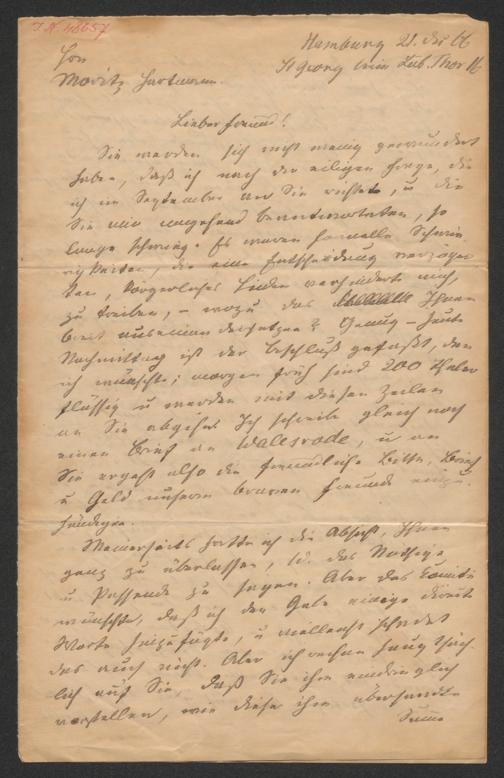 I.N. 48657
Hamburg 21. Dec 66
St Georg beim Lüb. Thor 16
Hrn
Moritz Hartmann.
Lieber Freund!
Sie werden sich nicht wenig gewundert
haben, daß ich nach der eiligen Frage, die
ich im September an Sie richtete, u die
Sie mir umgehend beantworteten, so
lange schwieg. Es waren formelle Schwie
rigkeiten, die eine Entscheidung verzöger
ten, körperliches Leiden verhinderte mich,
zu treiben, – wozu das Ihnen
breit auseinandersetzen? Genug – heute
Nachmittag ist der Beschluß gefaßt, den
ich wünschte; morgen früh sind 200 Thaler
flüssig u werden mit diesen Zeilen
an Sie abgehen. Ich schreibe gleich noch
einen Brief an Walesrode, u an
Sie ergeht also die freundliche Bitte, Brief
u Geld unserm braven Freunde einzu-
händigen.
Meinerseits hatte ich die Absicht, Ihnen
ganz zu überlassen, ihm das Nöthige
u Passende zu sagen. Aber das Comité
wünschte, daß ich der Gabe einige
Worte hinzufügte, u vielleicht schadet
das auch nicht. Aber ich rechne hauptsäch
lich auf Sie, daß Sie ihm eindringlich
vorstellen, wie diese ihm übersandte
Summe